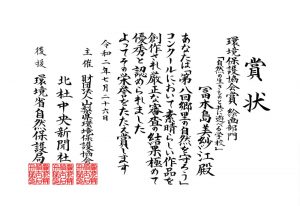 賞状
環境保護協会賞 絵画部門
「自然の生きものと共に遊べる学校」
冨木島美紗江殿
あなたは「第八回郷里の自然を守ろう」
コンクールにおいて素晴らしい作品を
創作され厳正な審査の結果極めて
優秀と認められました
よってその栄誉をたたえ賞します
令和二年七月二十六日
主催 財団法人山梨県環境保護協会
北杜中央新聞社
後援 環境省自然保護局